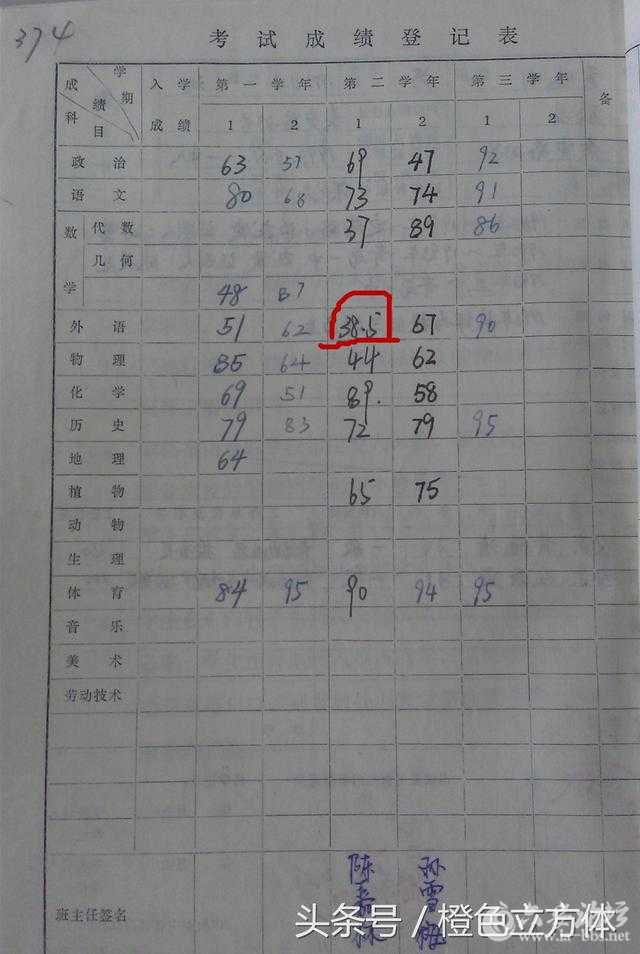 374
考试成绩登记表
学期 成绩 科目 入学成绩 第一学年 第二学年 第三学年 备
1 2 1 2 1 2
政治 63 57 69 47 92
语文 80 68 73 74 91
数学 代数 37 89 86
几何
48 57
外语 51 62 38.5 67 90
物理 55 64 44 62
化学 69 51 89. 58
历史 79 83 72 79 95
地理 64
植物 65 75
动物
生理
体育 84 95 90 94 95
音乐
美术
劳动技术
班主任签名 陈 孙雪梅
头条号 / 橙色立方体